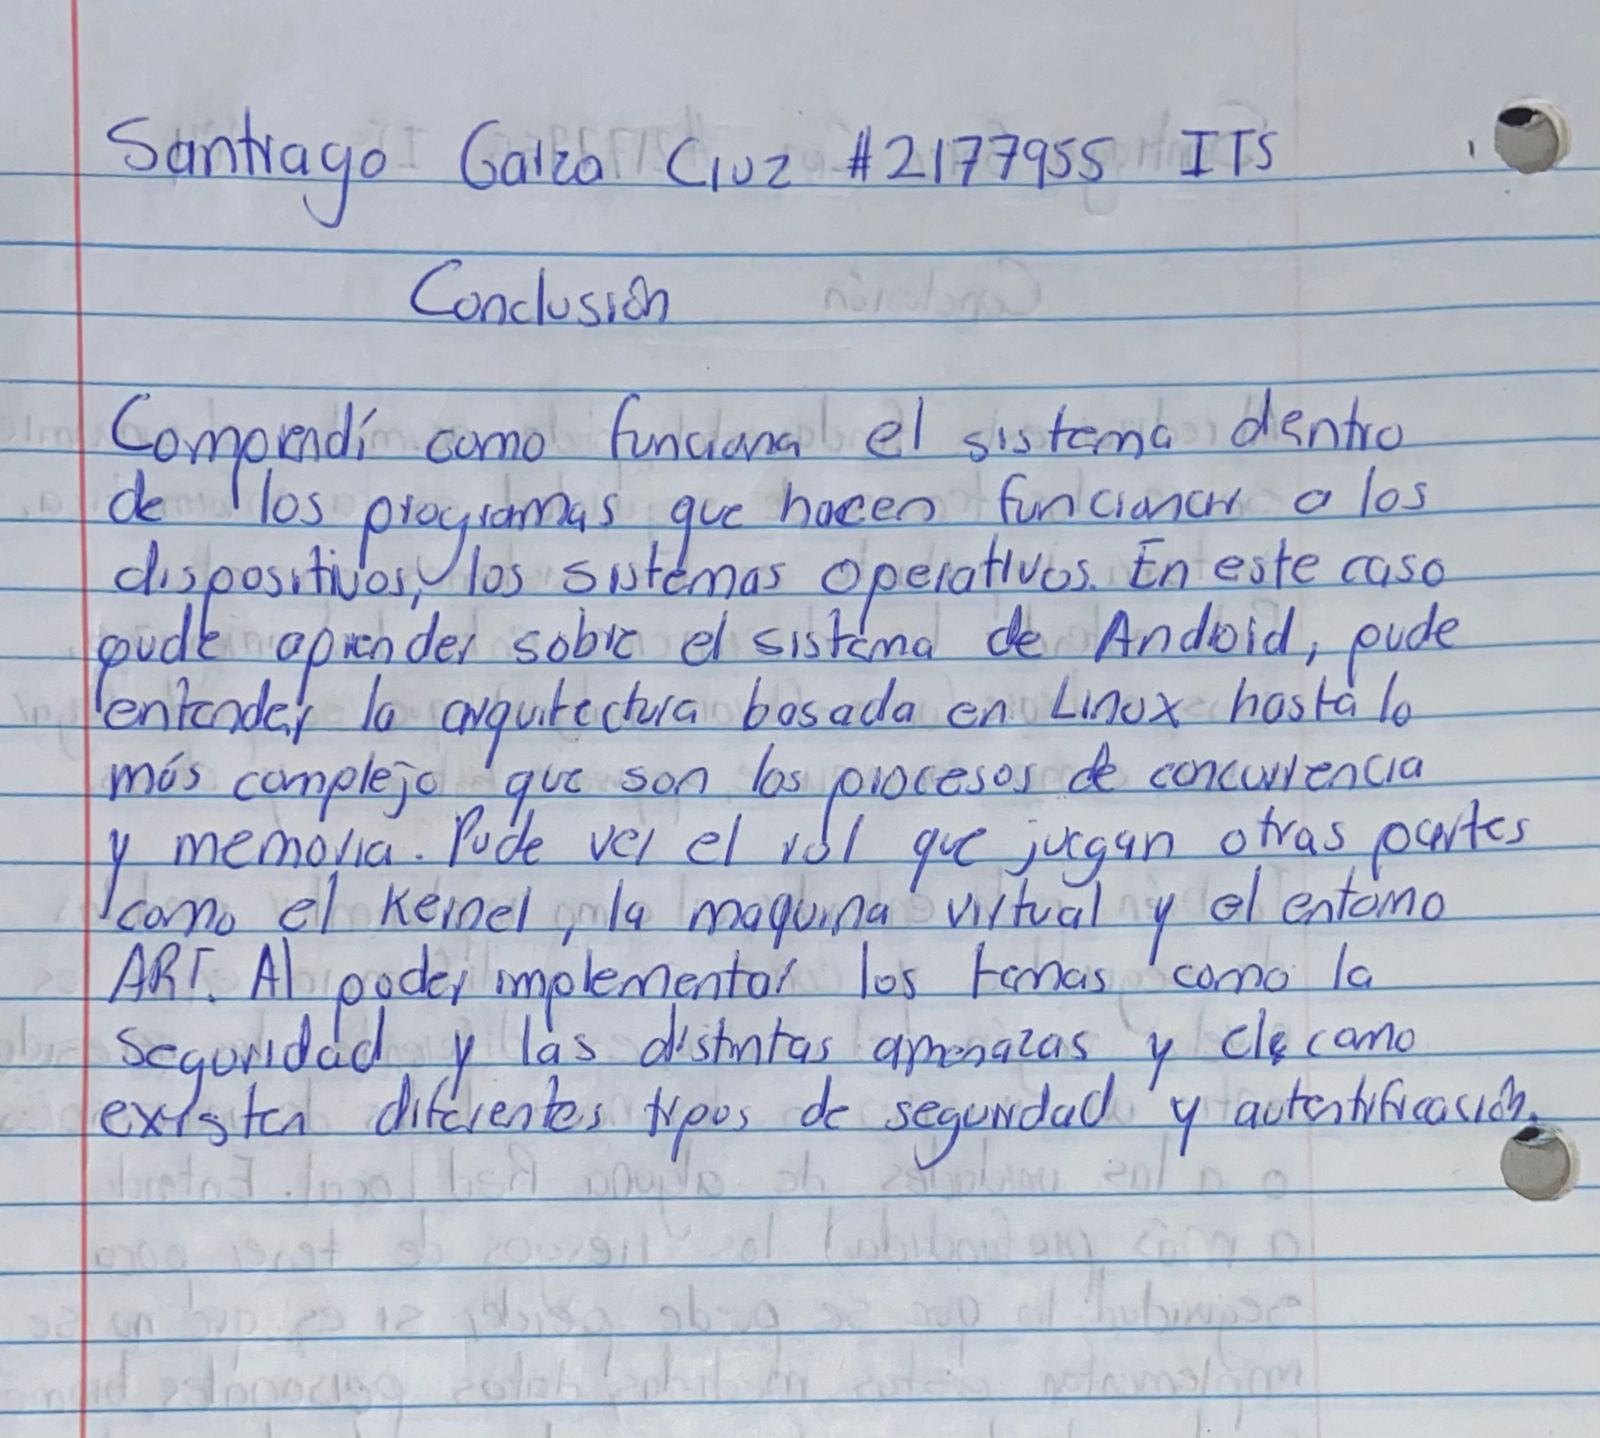 Santiago Garza Cruz #2177955 ITS
Conclusión
Comprendí como funciona el sistema dentro
de los programas que hacen funcionar a los
dispositivos, los sistemas operativos. En este caso
pude aprender sobre el sistema de Android, pude
entender la arquitectura basada en Linux hasta lo
más complejo que son los procesos de concurrencia
y memoria. Pude ver el rol que juegan otras partes
como el Kernel, la maquina virtual y el entorno
ART. Al poder implementar los temas como la
seguridad y las distintas amenazas y como
existen diferentes tipos de seguridad y autentificación.